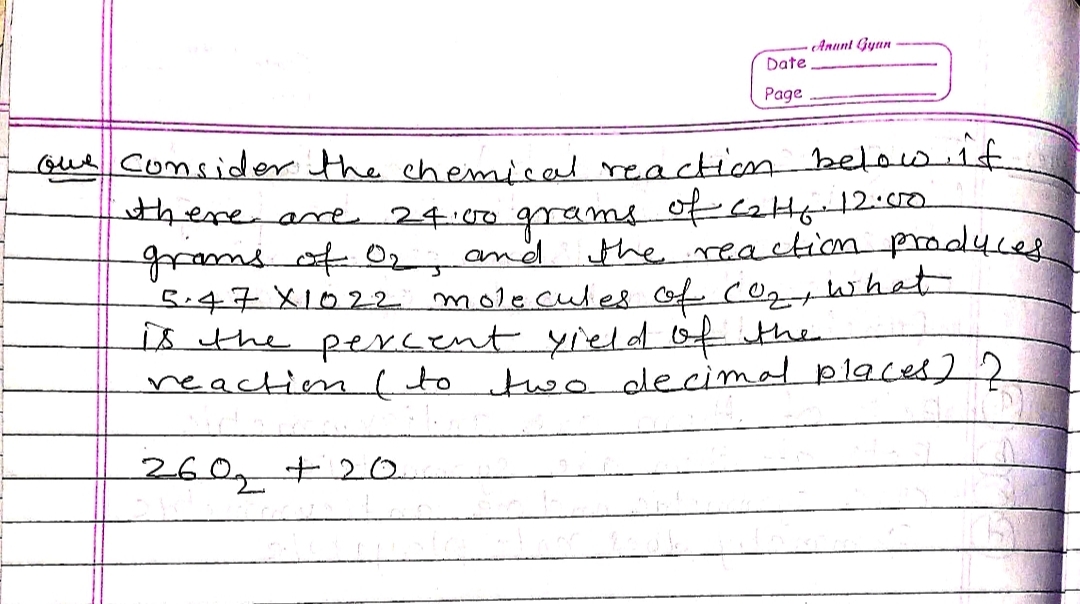 Anant Gyan
Date
Page
Que Consider the chemical reaction below. if
there are 24.00 grams of C2H6. 12.00
grams of O2, and the reaction produces
5.47 X1022 molecules of CO2, what
is the percent yield of the
reaction ( to two decimal places) ?
26O2 + 20